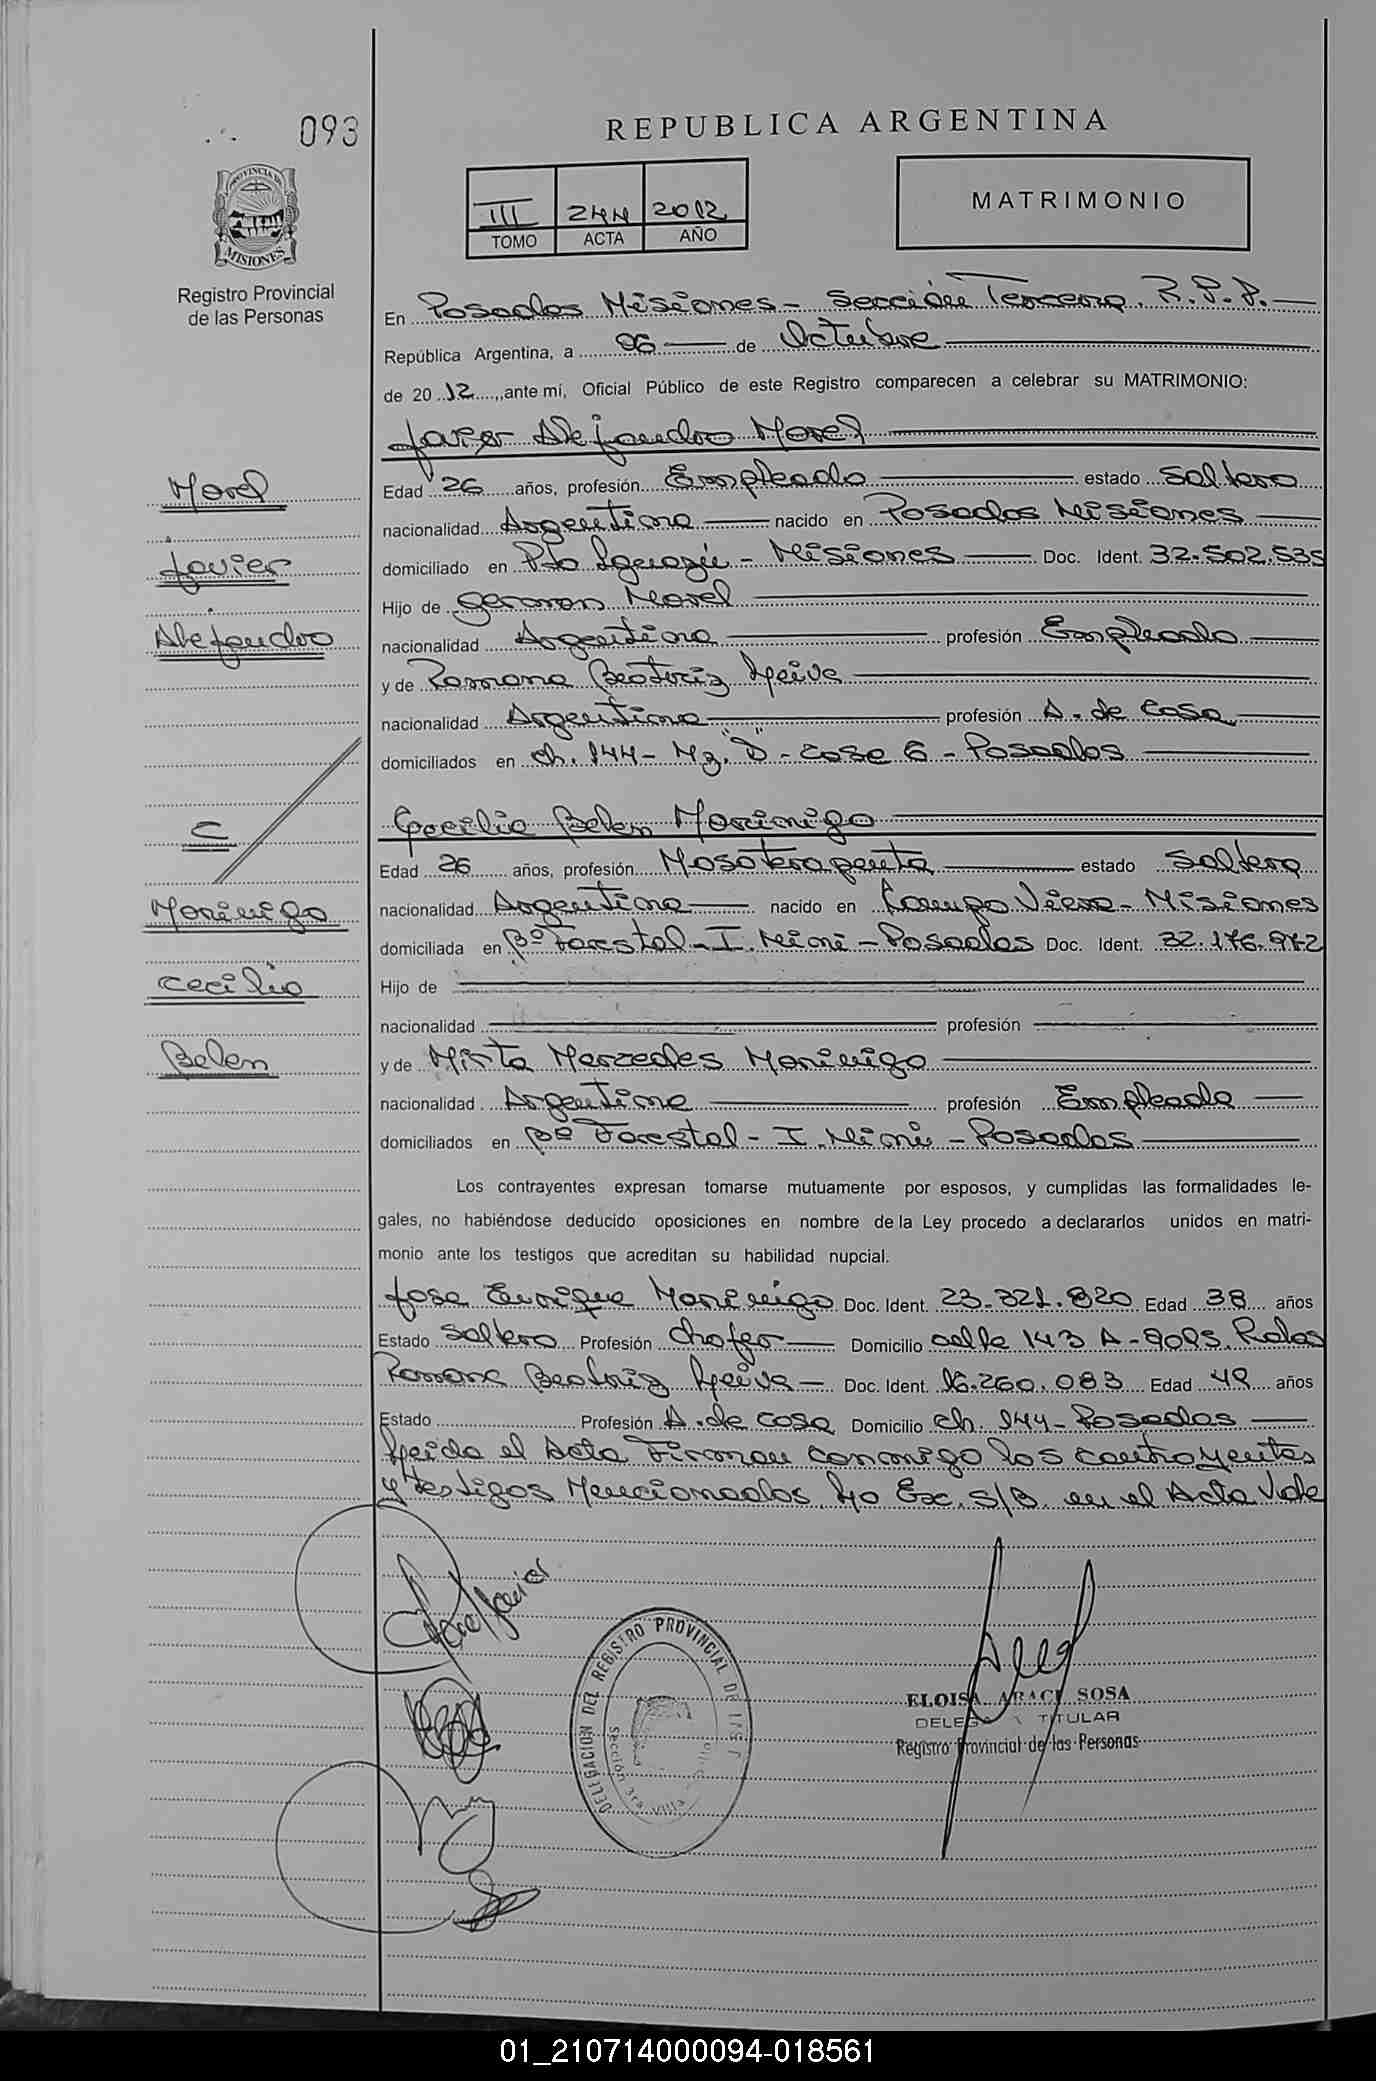 093
REPUBLICA ARGENTINA
PROVINCIA DE
MISIONES
Registro Provincial
de las Personas
III 244 2012
TOMO ACTA AÑO
MATRIMONIO
En Posadas Misiones - Sección Tercera R.P.P.
República Argentina, a 06 de Octubre
de 2012, ante mí, Oficial Público de este Registro comparecen a celebrar su MATRIMONIO:
Javier Alejandro Morel
Morel
Edad 26 años, profesión Empleado estado Soltero
nacionalidad Argentina nacido en Posadas Misiones
Javier
domiciliado en Pto Iguazú - Misiones Doc. Ident. 32.502.535
Hijo de German Morel
Alejandro
nacionalidad Argentina profesión Empleado
y de Ramona Beatriz Leiva
nacionalidad Argentina profesión A. de Casa
domiciliados en ch. 144 - Mz. "D" - Casa 6 - Posadas
C
Cecilia Belen Morinigo
Edad 26 años, profesión Masoterapeuta estado Soltera
Morinigo
nacionalidad Argentina nacido en Campo Viera - Misiones
domiciliada en Bº Forestal - I. Mini - Posadas Doc. Ident. 32.176.972
Cecilia
Hijo de
nacionalidad profesión
Belen
y de Mirta Mercedes Morinigo
nacionalidad Argentina profesión Empleada
domiciliados en Bº Forestal - I. Mini - Posadas
Los contrayentes expresan tomarse mutuamente por esposos, y cumplidas las formalidades le-
gales, no habiéndose deducido oposiciones en nombre de la Ley procedo a declararlos unidos en matri-
monio ante los testigos que acreditan su habilidad nupcial.
Jose Enrique Morinigo Doc. Ident. 23.321.820 Edad 38 años
Estado Soltero Profesión Chofer Domicilio calle 143 A - 9095. Pdas
Ramona Beatriz Leiva - Doc. Ident. 16.260.083 Edad 49 años
Estado Profesión A. de casa Domicilio ch. 144 - Posadas
Leida el Acta Firman conmigo los contrayentes
y testigos Mencionados. Lo Exc. S/B en el Acta Vale
Javier
DELEGACION DEL REGISTRO PROVINCIAL DE LAS P
Sección 3ra. Villa
ELOISA ARACI SOSA
DELEGADA TITULAR
Registro Provincial de las Personas
01_210714000094-018561